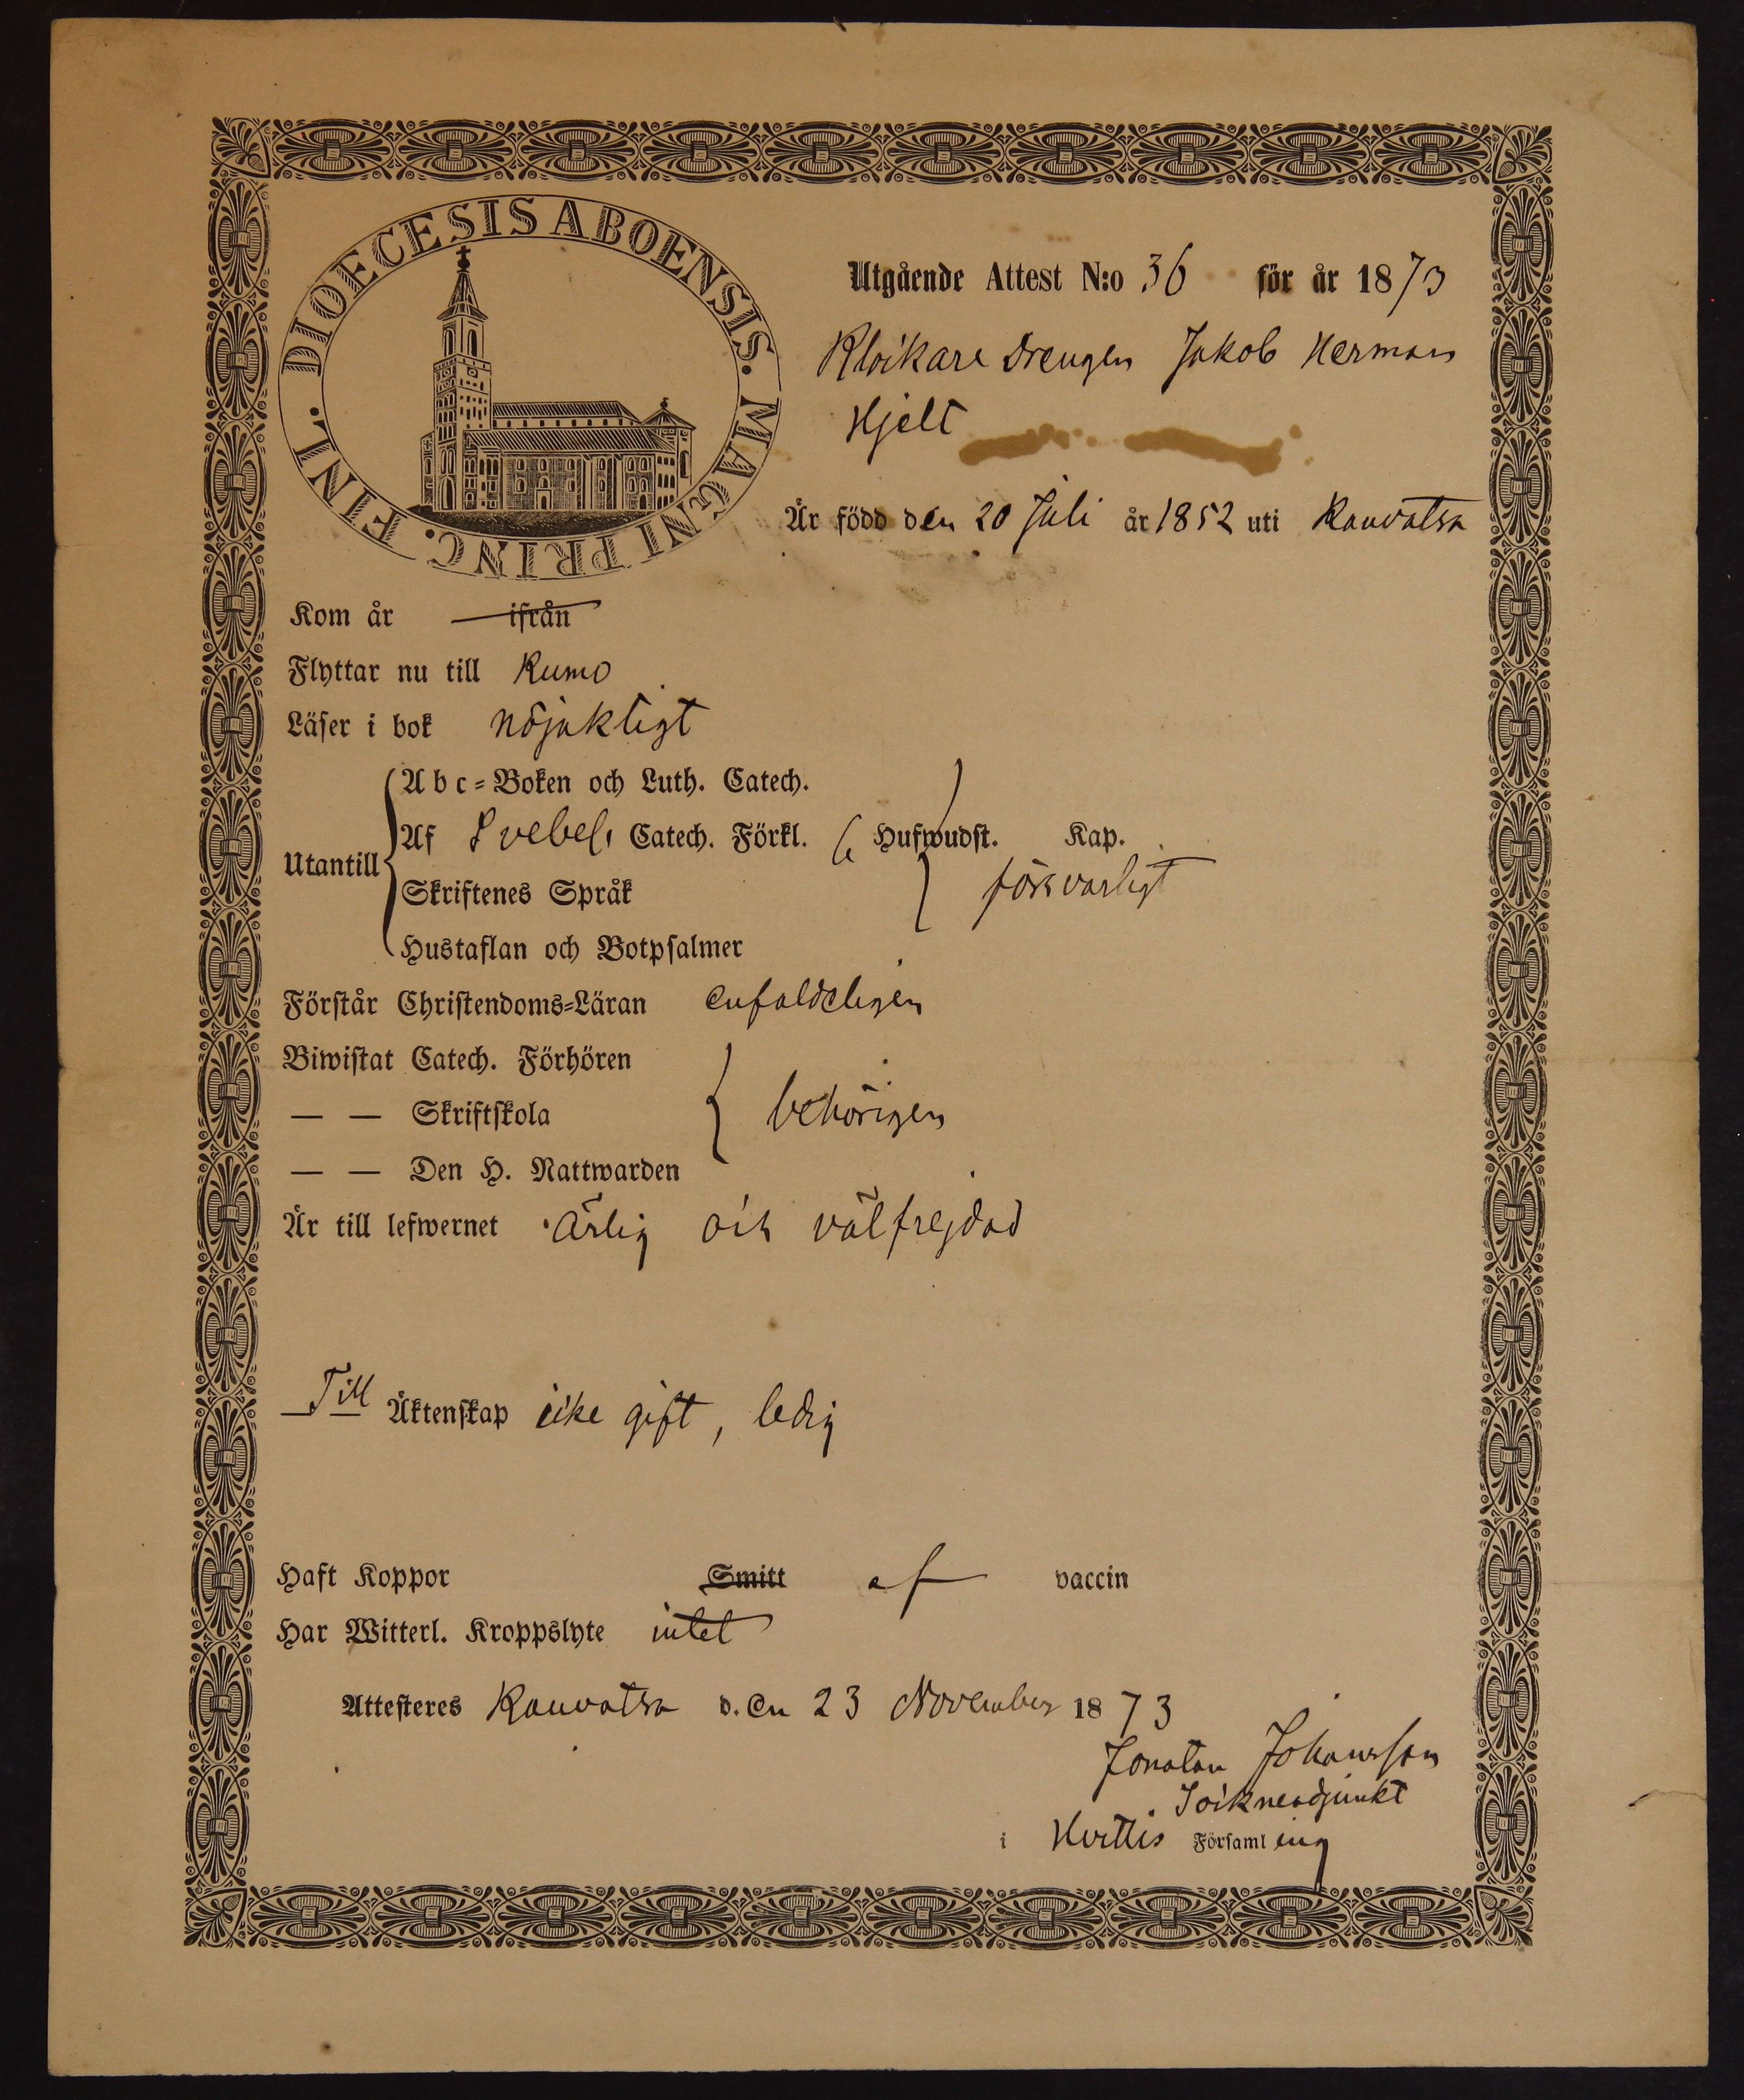 DIOECESIS ABOENSIS. MAGNI PRINC. FINL.
Utgående Attest N:o 36 för år 1873
Klockare Drengen Jakob Herman
Hjelt
Är född den 20 Juli år 1852 uti Kauvatsa
Kom år ifrån
Flyttar nu till Kumo
Läser i bok nöjaktigt
Abc-Boken och Luth. Catech.
Af Svebel. Catech. Förkl. 6 Hufwudst. Kap.
Utantill
försvarligt
Skriftenes Språk
Hustaflan och Botpsalmer
Förstår Christendoms-Läran enfaldeligen
Biwistat Catech. Förhören
— — Skriftskola behörigen
— — Den H. Nattwarden
Är till lefwernet ärlig och välfrejdad
Till Äktenskap icke gift, ledig
Haft Koppor Smitt af vaccin
Har Witterl. Kroppslyte intet
Attesteres Kauvatsa d. en 23 November 1873
Jonatan Johansson
Sockneadjunkt
i Hvittis Församling